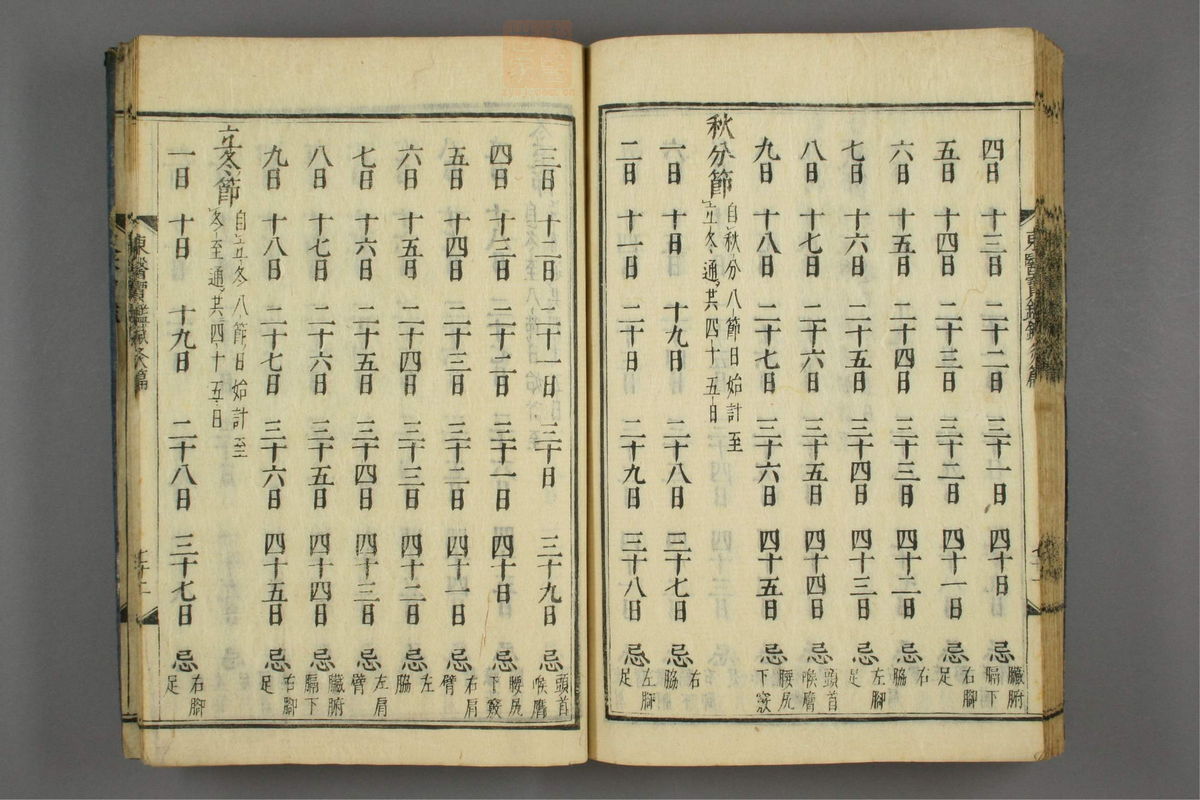 四日 十三日 二十二日 三十一日 四十日 忌 臟腑膈下
五日 十四日 二十三日 三十二日 四十一日 忌 右腳足
六日 十五日 二十四日 三十三日 四十二日 忌 右脇
七日 十六日 二十五日 三十四日 四十三日 忌 左腳足
八日 十七日 二十六日 三十五日 四十四日 忌 頭首喉膺
九日 十八日 二十七日 三十六日 四十五日 忌 腰尻下竅
秋分節 自秋分八節日始計至
立冬通共四十五日
六日 十日 十九日 二十八日 三十七日 忌 右脇
二日 十一日 二十日 二十九日 三十八日 忌 左腳足
三日 十二日 二十一日 三十日 三十九日 忌 頭首喉膺
四日 十三日 二十二日 三十一日 四十日 忌 腰尻下竅
五日 十四日 二十三日 三十二日 四十一日 忌 右肩臂
六日 十五日 二十四日 三十三日 四十二日 忌 左脇
七日 十六日 二十五日 三十四日 四十三日 忌 左肩臂
八日 十七日 二十六日 三十五日 四十四日 忌 臟腑膈下
九日 十八日 二十七日 三十六日 四十五日 忌 右腳足
立冬節 自立冬八節日始計至
冬至通共四十五日
一日 十日 十九日 二十八日 三十七日 忌 右腳足
東醫寶鑑鍼灸篇